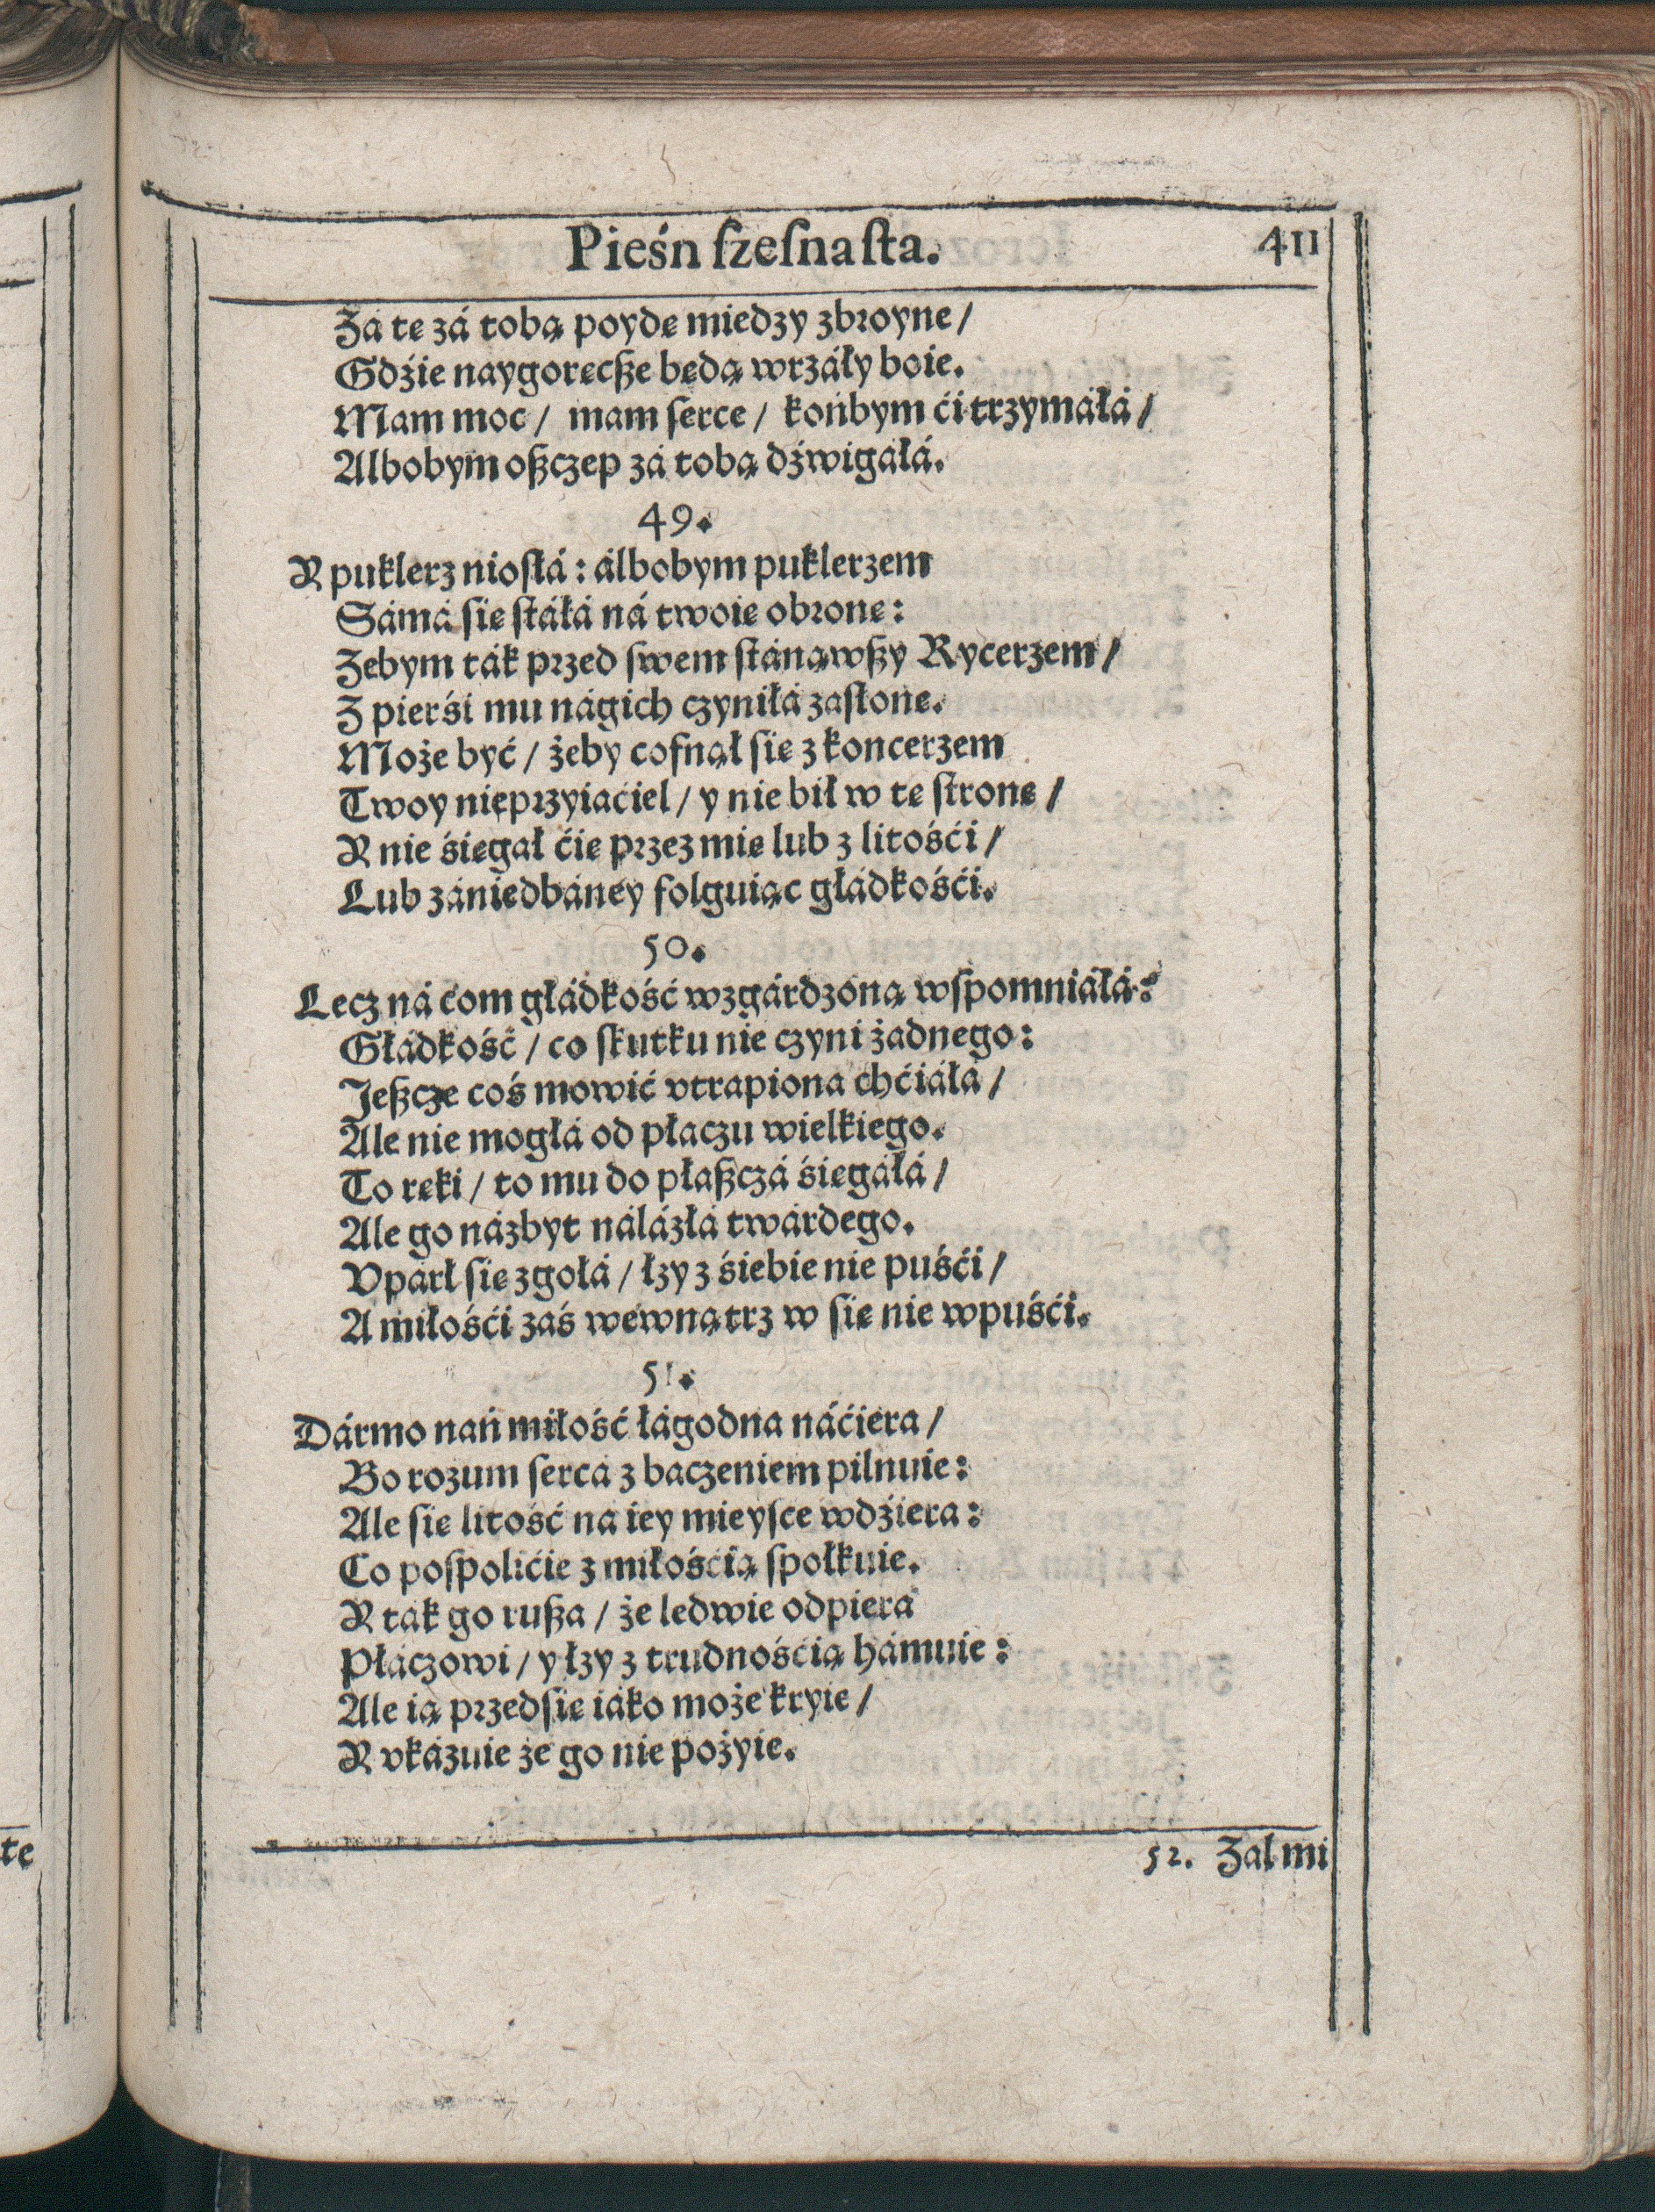 Pieśń ſzeſnaſta. 411
Za te zá tobą poydę miedzy zbroyne /
Gdźie naygoręcſze będą wrzáły boie.
Mam moc / mam ſerce / końbym ći trzymáłá /
Albobym oſzczep zá tobą dźwigáłá.
49.
Y puklerz nioſłá : álbobym puklerzem
Sámá ſię ſtáłá ná twoię obronę :
Zebym ták przed ſwem ſtánąwſzy Rycerzem /
Z pierśi mu nágich czyniłá zasłonę.
Może być / żeby cofnął ſię z koncerzem
Twoy nieprzyiaćiel / y nie bił w tę ſtronę /
Y nie śięgał ćię przez mię lub z litośći /
Lub zániedbáney folguiąc głádkośći.
50.
Lecz ná com głádkość wzgárdzoną wſpomniáłá :
Głádkość / co ſkutku nie czyni żadnego :
Jeſzcze coś mowić vtrapiona chćiáłá /
Ale nie mogłá od płaczu wielkiego.
To ręki / to mu do płaſzczá śięgáłá /
Ale go názbyt nálázłá twárdego.
Vpárł ſię zgołá / łzy z śiebie nie puśći /
A miłośći záś wewnątrz w ſię nie wpuśći.
51.
Dármo nań miłość łágodna náćiera /
Bo rozum ſercá z baczeniem pilnuie :
Ale ſię litość na iey mieyſce wdźiera :
Co poſpolićie z miłośćią ſpołkuie.
Y ták go ruſza / że ledwie odpiera
Płáczowi / y łzy z trudnośćią hámuie :
Ale ią przedſię iáko może kryie /
Y vkázuie że go nie pożyie.
52. Zal mi
tę